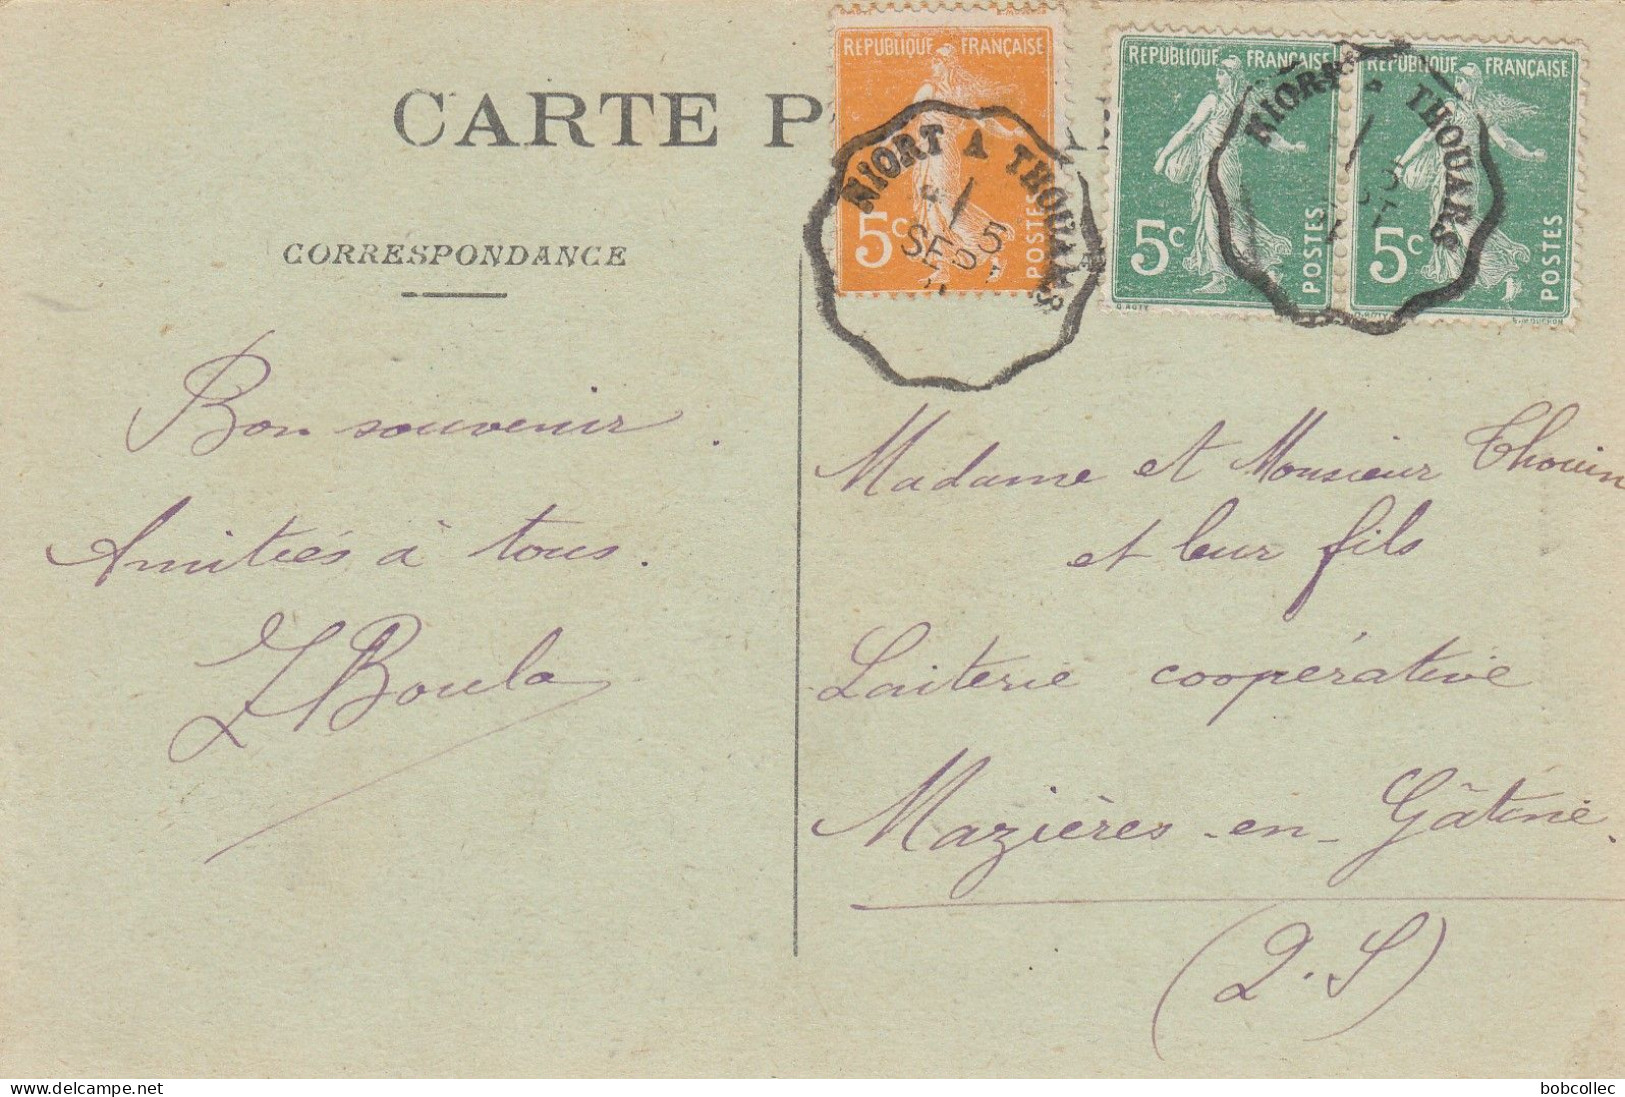 CARTE P
REPUBLIQUE FRANÇAISE
5c POSTES
REPUBLIQUE FRANÇAISE
5c POSTES
REPUBLIQUE FRANÇAISE
5c POSTES
NIORT A THOUARS
5
SEPT
NIORT A THOUARS
CORRESPONDANCE
Bon souvenir.
Amitiés à tous.
Boula
Madame et Monsieur Thouin
et leur fils
Laiterie coopérative
Mazières-en-Gâtine.
(2.S)
bobcollec